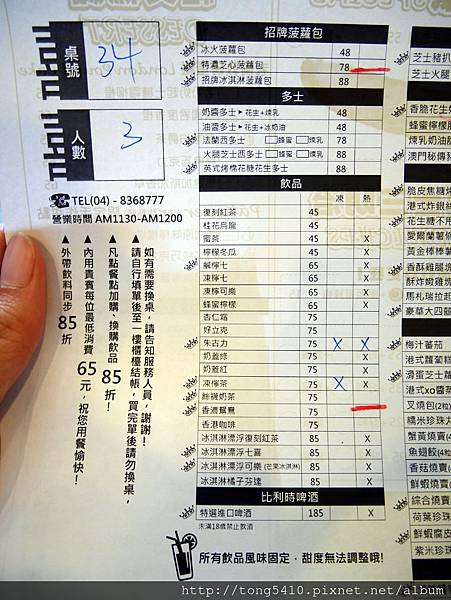 桌號 34
人數 3
TEL(04) - 8368777
營業時間 AM1130-AM1200
▲如有需要換桌,請告知服務人員,謝謝!
▲請自行填單後至一樓櫃檯結帳,買完單後請勿換桌,
▲凡點餐點加購、換購飲品85折!
▲內用貴賓每位最低消費65元,祝您用餐愉快!
▲外帶飲料同步85折
招牌菠蘿包
冰火菠蘿包 48
特濃芝心菠蘿包 78
招牌冰淇淋菠蘿包 88
多士
奶醬多士►花生+煉乳 48
油醬多士►花生+冰奶油 48
法蘭西多士 □蜂蜜 □煉乳 78
火腿芝士西多士 □蜂蜜 □煉乳 88
英式烤棉花糖花生多士 88
飲品 凍 熱
復刻紅茶 45
桂花烏龍 45
蜜茶 45 X
檸檬冬瓜 45 X
鹹檸七 65 X
凍檸七 65 X
凍檸可樂 65 X
蜂蜜檸檬 65 X
杏仁霜 75
好立克 75
朱古力 75 X X
奶蓋綠 75 X
奶蓋紅 75 X
凍檸茶 75 X X
絲襪奶茶 75
香濃鴛鴦 75
香港咖啡 75
冰淇淋漂浮復刻紅茶 85 X
冰淇淋漂浮七喜 85 X
冰淇淋漂浮可樂(芒果冰淇淋) 85 X
冰淇淋橘子芬達 85 X
比利時啤酒
特選進口啤酒 185 X
未滿18歲禁止飲酒
所有飲品風味固定,甜度無法調整哦!
芝士豬扒
芝士火腿
香脆花生
蜂蜜檸檬
煉乳奶油
澳門秘傳
脆皮焦糖
港式炸銀
花生糖不
愛爾蘭薯
黃金棒棒
香酥雞腿
酥炸嫩雞
馬札瑞拉
豪華大四
梅汁番茄
港式蘿蔔
滑蛋芝士
港式xo醬
叉燒包(2
糯米珍珠
蟹黃燒賣
魚翅餃(4
香菇燒賣
鮮蝦燒賣
綜合燒賣
荷葉珍珠
鮮蝦腐皮
紫米珍珠
http://tong5410.pixnet.net/album